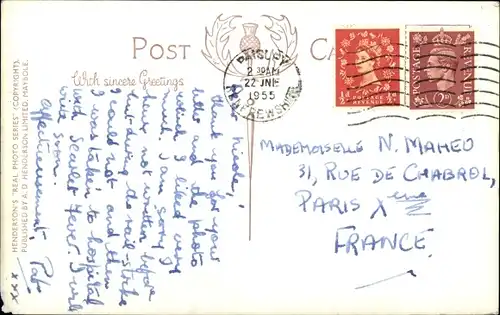 POST CA
With sincere Greetings
PAISLEY
2 30AM
22 JNE
1955
RENFREWSHIRE
½D POSTAGE REVENUE ½D
POSTAGE REVENUE
2D
HENDERSON'S "REAL PHOTO SERIES" (COPYRIGHT).
PUBLISHED BY A. D. HENDERSON LIMITED, MAYBOLE.
Dear Nicole,
thank you for your
letter and the photo
which I liked very
much. I am sorry I
have not written before
but owing to rail-strike
I could not and then
I was taken to hospital
with Scarlet Fever. I will
write soon.
Affectionately,
Pat.
xxx
MADEMOISELLE N. MAHEO
31, RUE DE CHABROL,
PARIS Xème
FRANCE.